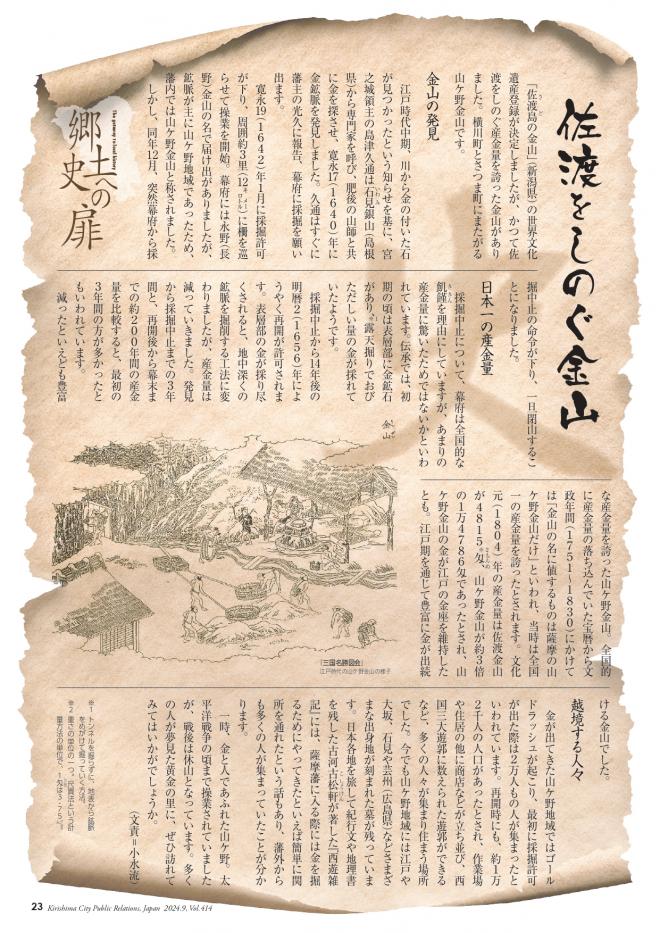 佐渡をしのぐ金山
「佐渡島の金山」(新潟県)の世界文化
遺産登録が決定しましたが、かつて佐
渡をしのぐ産金量を誇った金山があり
ました。横川町とさつま町にまたがる
山ケ野金山です。
金山の発見
江戸時代中期、川から金の付いた石
が見つかったという知らせを基に、宮
之城領主の島津久通は石見銀山(島根
県)から専門家を呼び、肥後の山師と共
に金を探させ、寛永17(1640)年に
金鉱脈を発見しました。久通はすぐに
藩主の光久に報告、幕府に採掘を願い
出ます。
寛永19(1642)年1月に採掘許可
が下り、周囲約3里(12キロメートル)に柵を巡
らせて操業を開始。幕府には永野(長
野)金山の名で届け出がありましたが、
鉱脈が主に山ケ野地域であったため、
藩内では山ケ野金山と称されました。
しかし、同年12月、突然幕府から採
The gateway to local history
郷土史への扉
掘中止の命令が下り、一旦閉山するこ
とになりました。
日本一の産金量
採掘中止について、幕府は全国的な
飢饉を理由にしていますが、あまりの
産金量に驚いたためではないかといわ
れています。伝承では、初
期の頃は表層部に金鉱石
があり、露天掘りでおび
ただしい量の金が採れて
いたようです。
採掘中止から14年後の
明暦2(1656)年によ
うやく再開が許可されま
す。表層部の金が採り尽
くされると、地中深くの
鉱脈を掘削する工法に変
わりましたが、産金量は
減っていきました。発見
から採掘中止までの3年
間と、再開後から幕末ま
での約200年間の産金
量を比較すると、最初の
3年間の方が多かったと
もいわれています。
減ったといえども豊富
金山
『三国名勝図会』
江戸時代の山ケ野金山の様子
な産金量を誇った山ケ野金山。全国的
に産金量の落ち込んでいた宝暦から文
政年間(1751~1830)にかけて
「金山の名に値するものは薩摩の山
ケ野金山だけ」といわれ、当時は全国
一の産金量を誇ったとされます。文化
元(1804)年の産金量は佐渡金山
が4815匁、山ケ野金山が約3倍
の1万4786匁であったとされ、山
ケ野金山の金が江戸の金座を維持した
とも。江戸期を通じて豊富に金が出続
ける金山でした。
越境する人々
金が出てきた山ケ野地域ではゴール
ドラッシュが起こり、最初に採掘許可
が出た際は2万人もの人が集まったと
いわれています。再開時にも、約1万
2千人の人口があったとされ、作業場
や住居の他に商店などが立ち並び、西
国三大遊郭に数えられた遊郭ができる
など、多くの人々が集まり住まう場所
でした。今でも山ケ野地域には江戸や
大坂、石見や芸州(広島県)などさまざ
まな出身地が刻まれた墓が残っていま
す。日本各地を旅して紀行文や地理書
を残した古河古松軒が著した『西遊雑
記』には、薩摩藩に入る際には金を掘
るためにやってきたといえば簡単に関
所を通れたという話もあり、藩外から
も多くの人が集まっていたことが分か
ります。
一時、金と人であふれた山ケ野。太
平洋戦争の頃まで操業されていました
が、戦後は休山となっています。多く
の人が夢見た黄金の里に、ぜひ訪れて
みてはいかがでしょうか。
(文責=小水流)
※1 トンネルを掘らずに、地表から鉱脈
をめがけて掘っていく方法。
※2 重さの単位の一つ。尺貫法という計
量方法の単位で、1匁は3・75㌘。
23 Kirishima City Public Relations, Japan 2024.9, Vol.414